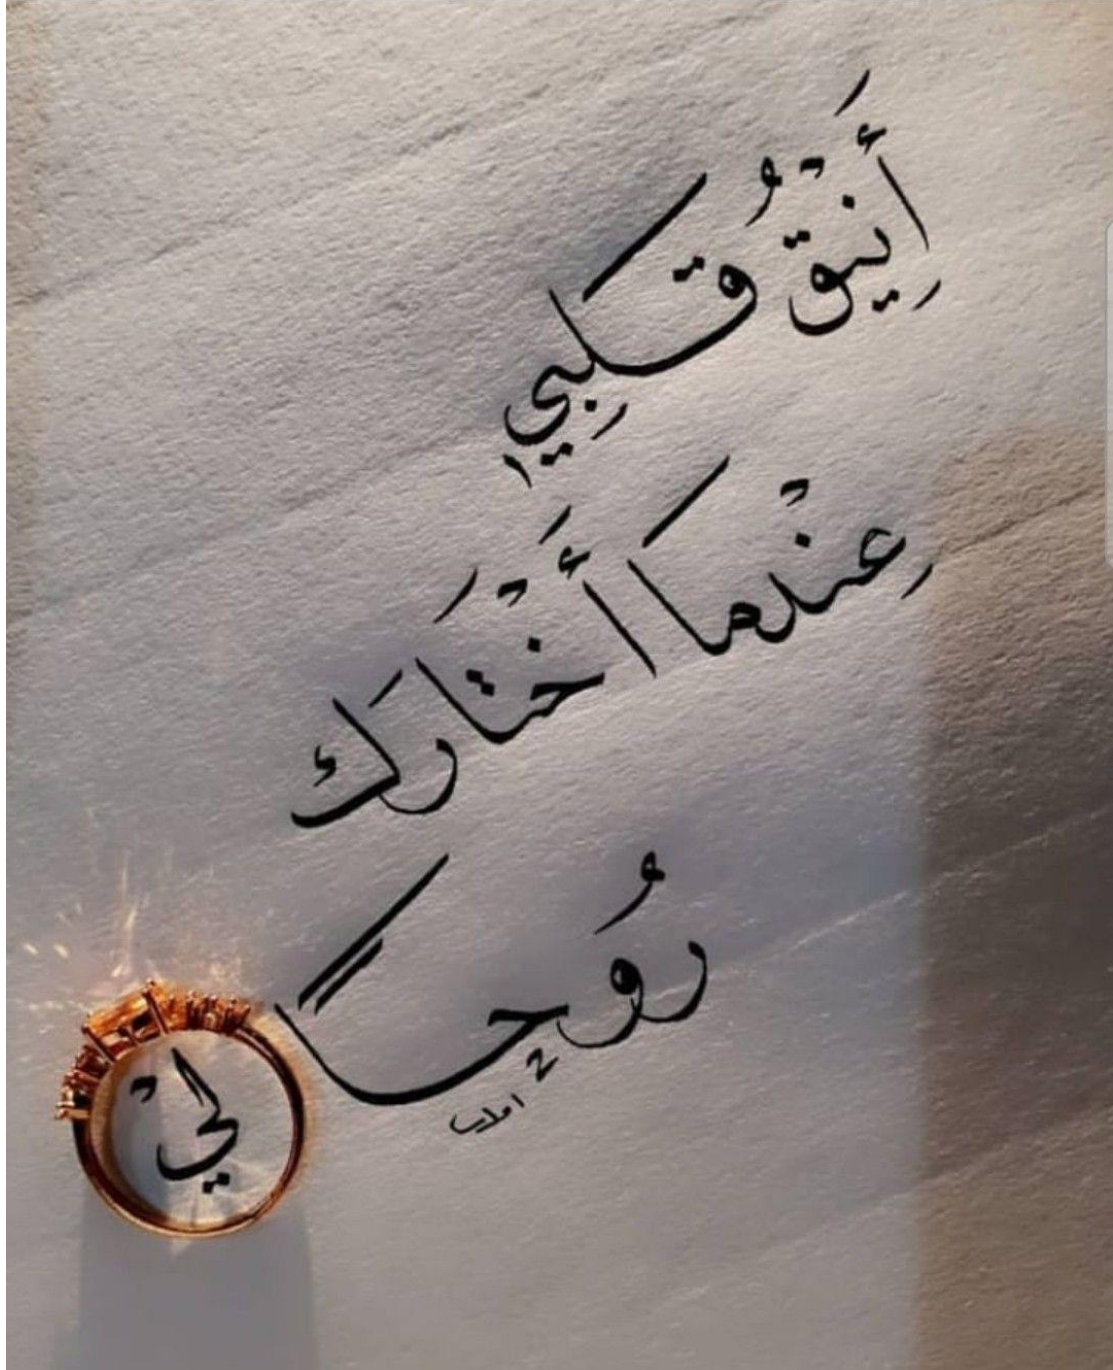 أَنِيْقٌ قَلبِي
عِنْدمَا أَخْتَارَك
رُوْحًا لِيْ